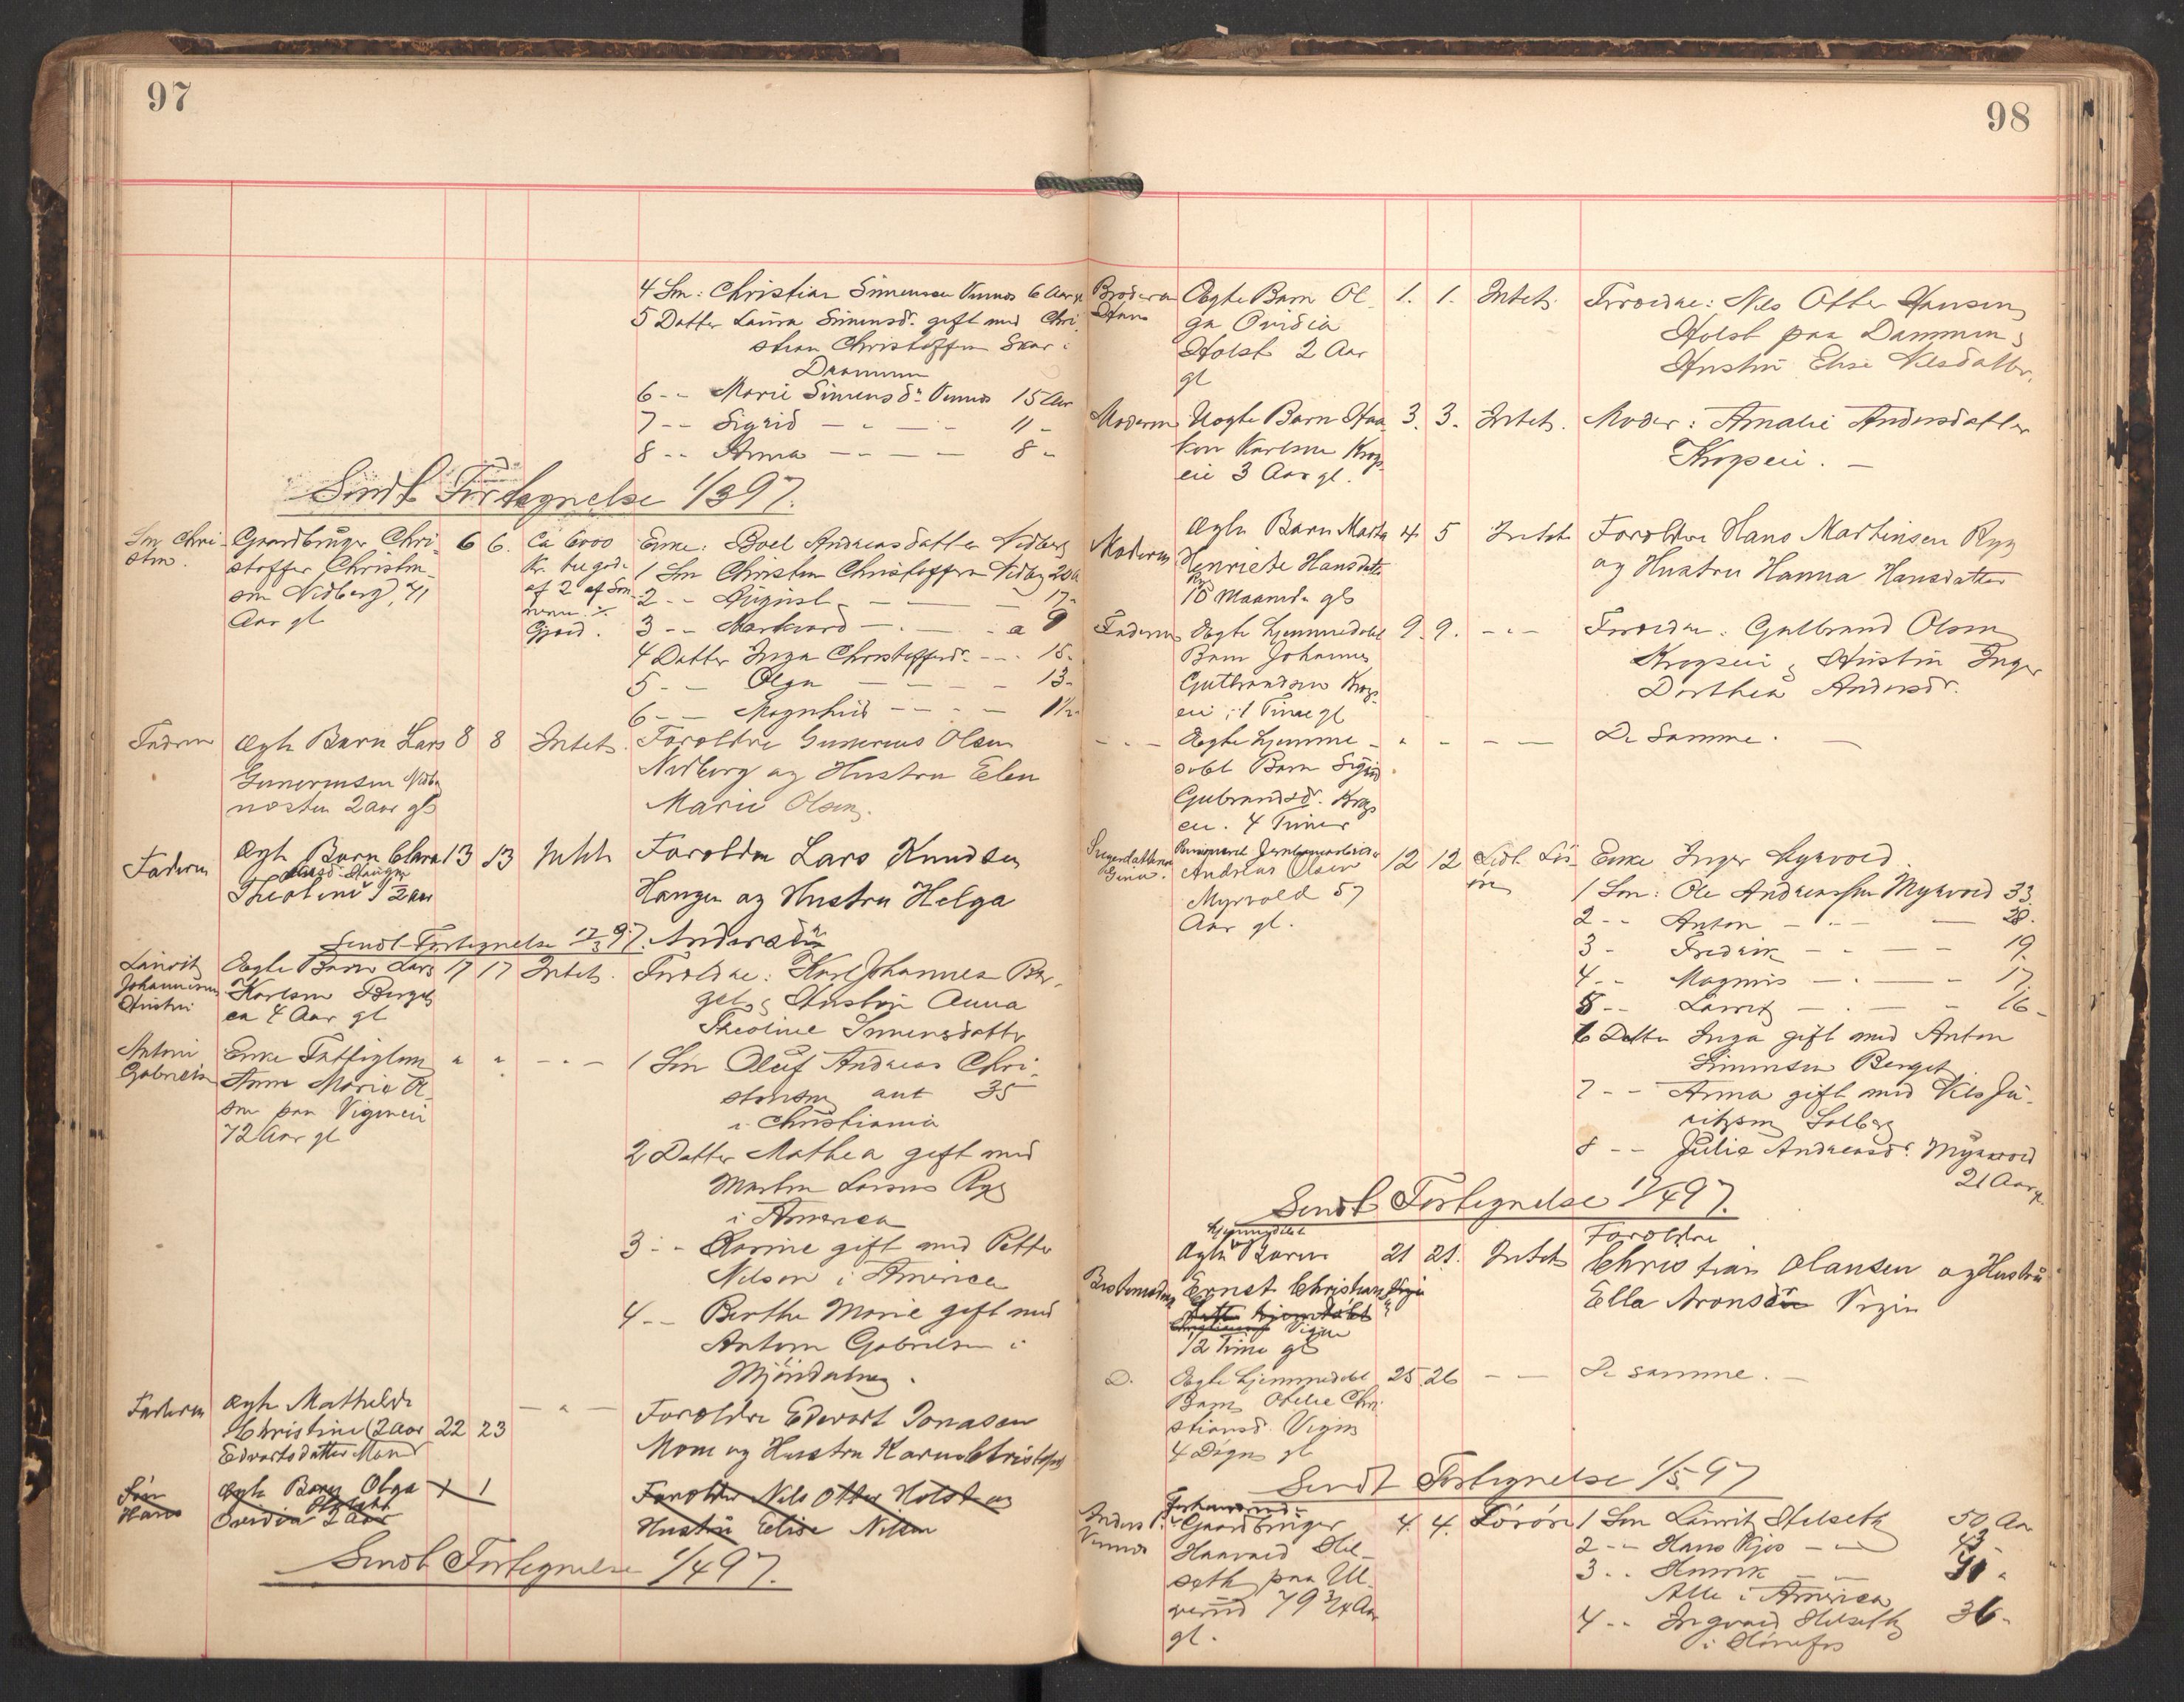 97
4 Søn: Christian Simensen Vinnes 6 Aar gl
5 Datter Laura Simensdr. gift med Chri-
stian Christoffersen Skar i
Drammen
6 - - Marie Simensdr. Vinnes 15 Aar
7 - - Sigrid - - - - 11 -
8 - - Anna - - - - 8 -
Sendt Fortegnelse 1/3 97.
Søn Chri-
sten.
Gaardbruger Chri-
stoffer Christen-
sen Nedberg, 71
Aar gl
6 6.
Ca 6000
Kr. 
af 2 af Søn-
nerne
Gjæld.
Enke: Boel Andreasdatter Nedberg
1 Søn Christen Christoffersen Nedberg 20
2 - - August - - - 17 -
3 - - Markvard - - - 9
4 Datter Inga Christoffersdr. - - - 15 -
5 - - Olga - - - - 13 -
6 - - Magnhild - - - - 1½
Faderen
Ægte Barn Lars
Guneriusen Nedberg
næsten 2 aar gl
8 8 Intet.
Forældre Gunerius Olsen
Nedberg og Hustru Elen
Marie Olsen.
Faderen
Ægte Barn Clara
Theoline Haugen 2 aar
13 13 Intet
Forældre Lars Knudsen
Haugen og Hustru Helga
Andersdr
Sendt Fortegnelse 17/3 97.
Lauritz
Johannesens
Hustru
Ægte Barn Lars
Karlsen Berget
ca 4 Aar gl
17 17 Intet.
Forældre: Karl Johannes Ber-
get & Hustru Anna
Theoline Simensdatter
Antoni
Gabrielsen
Enke Fattiglem
Anne Marie Ol-
sen paa Vigineie
72 Aar gl
" " - " -
1 Søn Oluf Andreas Chri-
stensen ant 35
i Christiania
2 Datter Mathea gift med
Martin Larsen Ryg
i America
3 - - Karine gift med Petter
Nilson i America
4 - - Berthe Marie gift med
Antoni Gabrielsen i
Mjøndalen.
Faderen
Ægte Mathilde
Christine (2 aar
Edvartsdatter Moen
22 23 - " -
Forældre Edvart Jonasen
Moen og Hustru Karen Christoffersdr
Søn
Hans
Ægte Barn Olga
Ovidia Holst 2 aar
1 1
Forældre Nils Otter Holst og
Hustru Elise Nilsen
Sendt Fortegnelse 1/4 97.
98
Broderen
Hans
Ægte Barn Ol-
ga Ovidia
Holst 2 Aar
gl
1. 1. Intet.
Forældre: Nils Otter Hansen
Holst paa Dammen &
Hustru Elise Nilsdatter.
Moderen
Uægte Barn Haa-
kon Karlsen Krops-
eie 3 Aar gl.
3. 3. Intet.
Moder: Amalie Andersdatter
Kropseie. -
Moderen
Ægte Barn Marta
Henriete Hansdatter
Ryg
18 Maaneder gl
4 5 Intet
Foræltre Hans Martinsen Ryg
og Hustru Hanna Hansdatter
Faderen
Ægte hjemmedøbt
Barn Johannes
Gulbrandsen Krops-
eie, 1 Time gl
9. 9. - " -
Forældre: Gulbrand Olsen
Kropseie & Hustru Inger
Dorthea Andersdr.
- - -
Ægte hjemme-
døbt Barn Sigrid
Gulbrandsdr. Krops-
eie. 4 Timer
" - - -
De Samme. -
Svigerdatteren
Gina.
Pensioneret Jernbanearbeider
Andreas Olsen
Myrvold 57
Aar gl.
12 12 Lidt Løs-
øre
Enke Inger Myrvold
1 Søn: Ole Andreassen Myrvold 33.
2 - - Anton - - - 28.
3 - Fredrik - - - 19.
4 - - Magnus - - - 17.
5 - - Laurits - - - 16 -
6 Datter Inga gift med Anton
Simensen Berget
7 - - Anna gift med Nels Ju-
ritzen Solberg
8 - - Julie Andreasdr. Myrvold
21 Aar gl.
Sendt Fortegnelse 17/4 97.
hjemmedøbt
Ægte Barn
Ernst Christiansen
Vigin
1/2 Time gl
21 21. Intet
Forældre
Christian Olausen og Hustru
Ella Aronsdr Vigin
D.
Ægte hjemmedøbt
Barn Otelie Chri-
stiansd. Vigin
4 Døgn gl
25 26 - -
De samme. -
Sendt Fortegnelse 1/5 97
Anders P.
Vinnes
Forhenværende
Gaardbruger
Haavard Hel-
seth paa Ul-
verud 79 3/4 Aar
gl.
4. 4. Løsøre
1 Søn Lauritz Helseth 50 Aar
2 - - Hans Kjøs - - 43 -
3 - - Henrik - - 40 -
Alle i America
4 - - Ingvald Helseth 36 -
i Hønefos